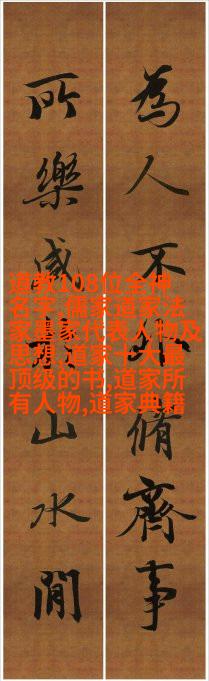 為人不脩齊事
所樂山水間
道教108位全神
名字,儒家道家法
家墨家代表人物及
思想,道家十大最
顶级的书,道家所
有人物,道家典籍